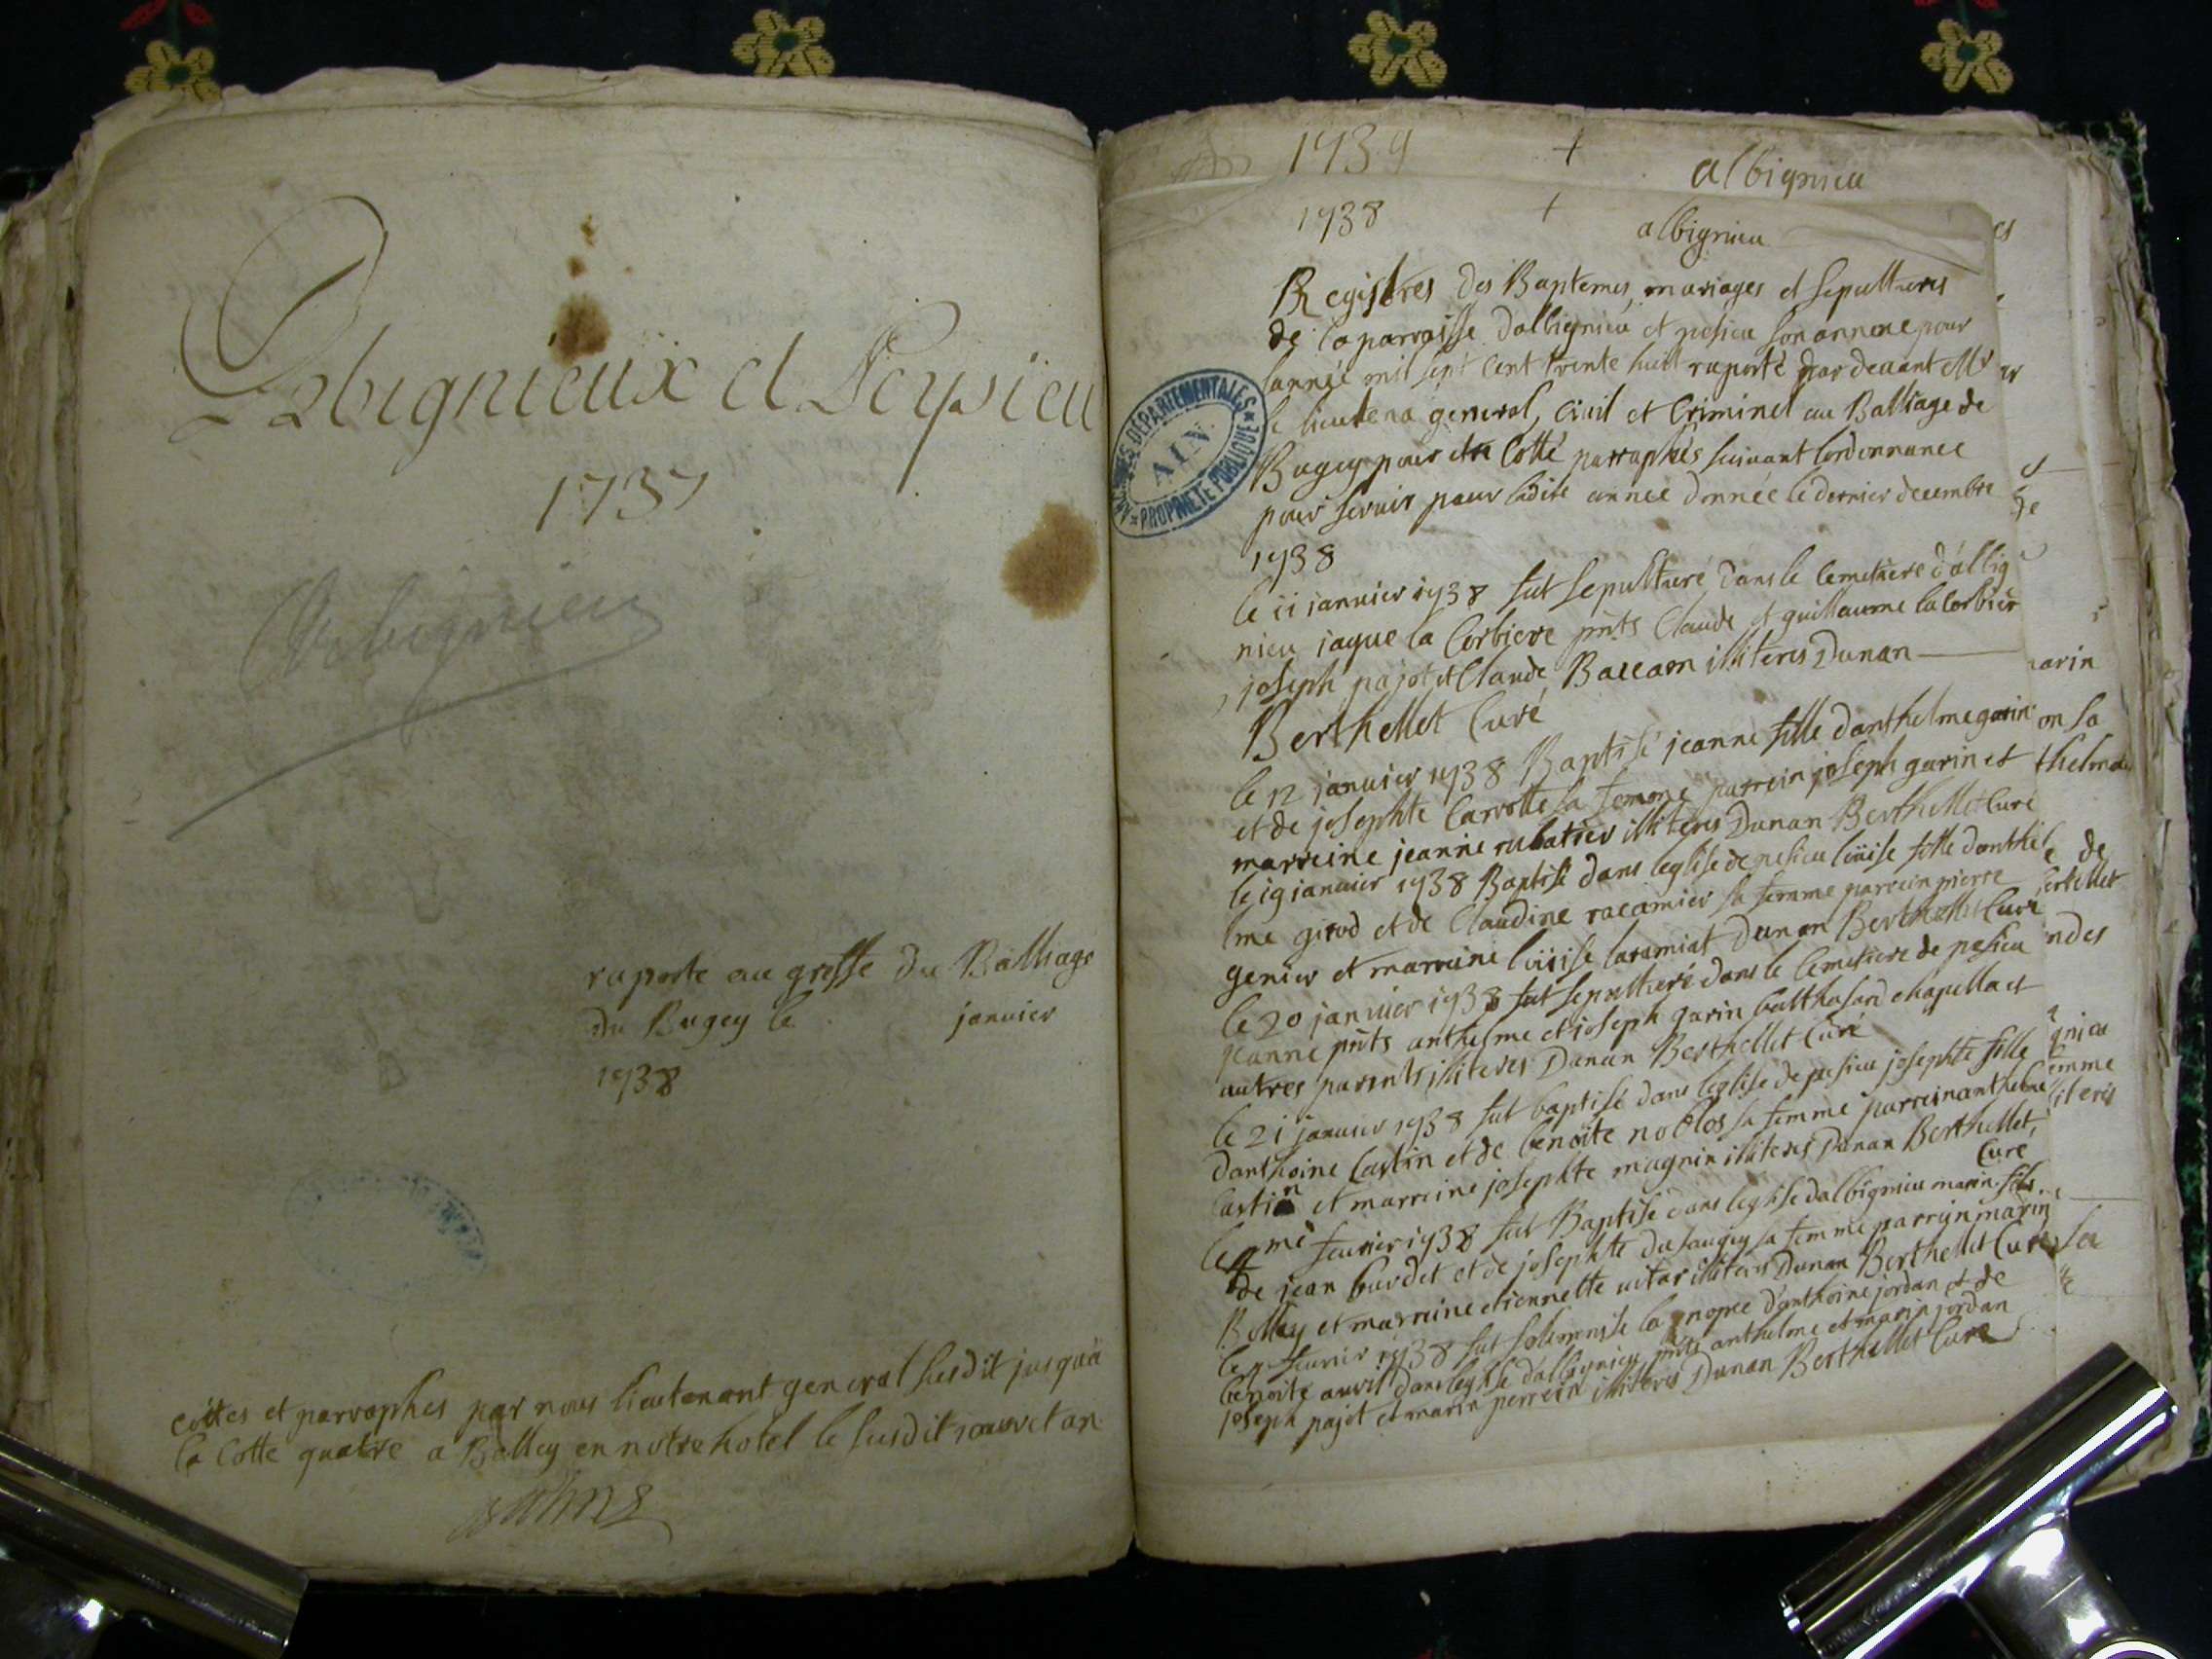 Arbignieux et Peysieu
1737
Arbignieu
raporte au greffe du Balliage
du Bugey le janvier
1738
cottes et parraphes par nous lieutenant general susdit jusqua
la Cotte quatre a Belley en notre hotel le susdit jour et an
1739 + albignieu
1738 + albignieu
Registres des Baptemes, mariages et sepultures
de la parroisse dalbignieu et pesieu son annexe pour
lannée mil sept cent trente huit raporté par devant Mr
le lieutena general, Civil et Criminel au Balliage de
Bugey pour etre Cotté parraphés suivant lordonnance
pour servir pour ladite année donnée le dernier decembre
1738
ARCHIVES DÉPARTEMENTALES
AIN
PROPRIÉTÉ PUBLIQUE
le 11 janvier 1738 fut sepulturé dans le Cemetiere d'albig
nieu jaque la Corbiere pnts Claude et guillaume la Corbier
joseph pajot et Claude Baccam illiteres Dunan
Berthellet Curé
le 12 janvier 1738 Baptisé jeanne fille danthelme garin
et de josephte Carrotte sa femme parrein joseph garin et
marreine jeanne rubatier illiteres Dunan Berthellet Curé
le 19 janvier 1738 Baptisé dans leglise de pesieu loüise fille danthel
lme girod et de Claudine racamier sa femme parrein pierre
genier et marreine loüise laramiat Dunan Berthellet Curé
le 20 janvier 1738 fut sepulturé dans le Cemetiere de pesieu
jeanne pnts anthelme et joseph garin balthasard chapella et
autres parents illiteres Dunan Berthellet Curé
le 21 janvier 1738 fut baptisé dans leglise de pesieu josephte fille
danthoine Castin et de benoite noblos sa femme parrein anthelme
Castin et marreine josephte magnin illiteres Dunan Berthellet,
Curé
le me fevrier 1738 fut Baptisé dans leglise dalbignieu marin fils
de jean burdet et de josephte du saugey sa femme parrein marin
Belley et marreine etiennette vitar illiteres Dunan Berthellet Curé
le fevrier 1738 fut solemnise la nopce d'anthoine jordan et de
benoite dans leglise dalbignieu pnts anthelme et marin jordan
joseph pajot et marin perrein illiteres Dunan Berthellet Curé
arin
on sa
thelme
de
ertellet
ndes
gnieu
emme
iteres
sa